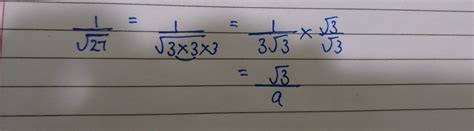 1/√27 = 1/√3×3×3 = 1/3√3 × √3/√3
= √3/9